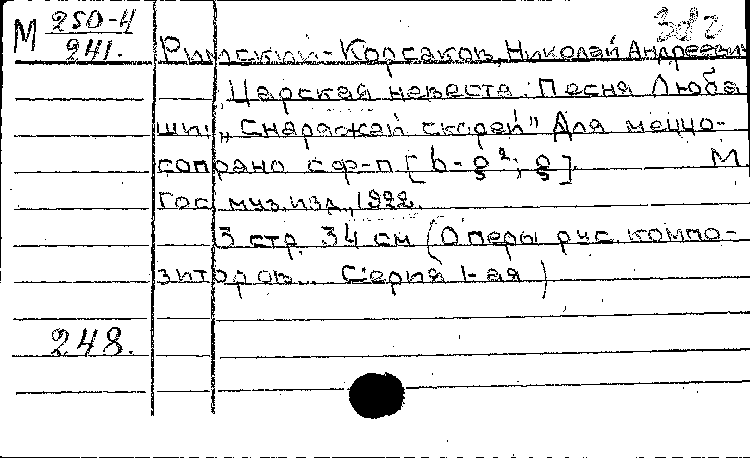 М 250-4
241.
Римский-Корсаков, Николай Андреевич
Царская невеста: Песня Люба
ши: „Снаряжай скорей" Для меццо-
сопрано с ф-п. [b-g²; g] М
Гос. муз. изд., 1922.
3 стр. 34 см (Оперы рус. компо-
зиторов... Серия I-ая)
248.